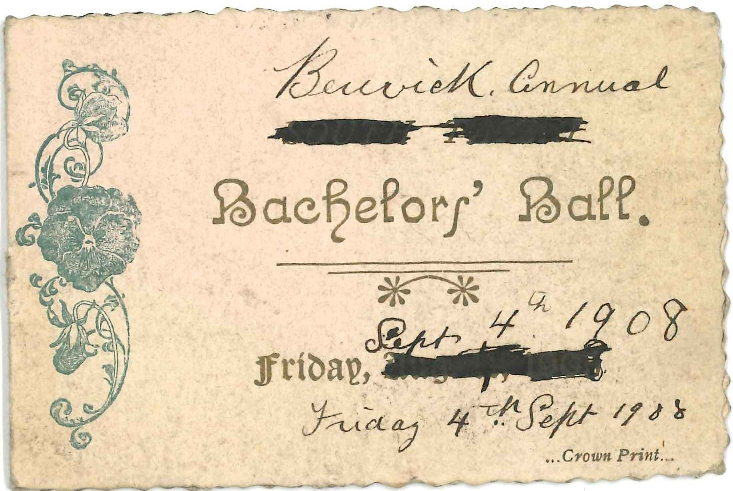 Berwick. Annual
SOUTH
Bachelors' Ball.
Sept 4th 1908
Friday,
Friday 4th Sept 1908
...Crown Print...